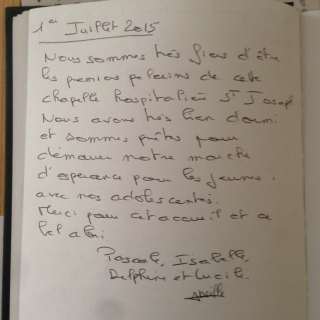 1er Juillet 2015
Nous sommes très fiers d'être
les premiers pelerins de cette
chapelle hospitalière St Joseph
Nous avons très bien dormi
et sommes prêtes pour
démarrer notre marche
d'espérance pour les jeunes.
avec nos adolescentes.
Merci pour cet accueil et ce
bel abri
Pascale, Isabelle,
Delphine et Lucile